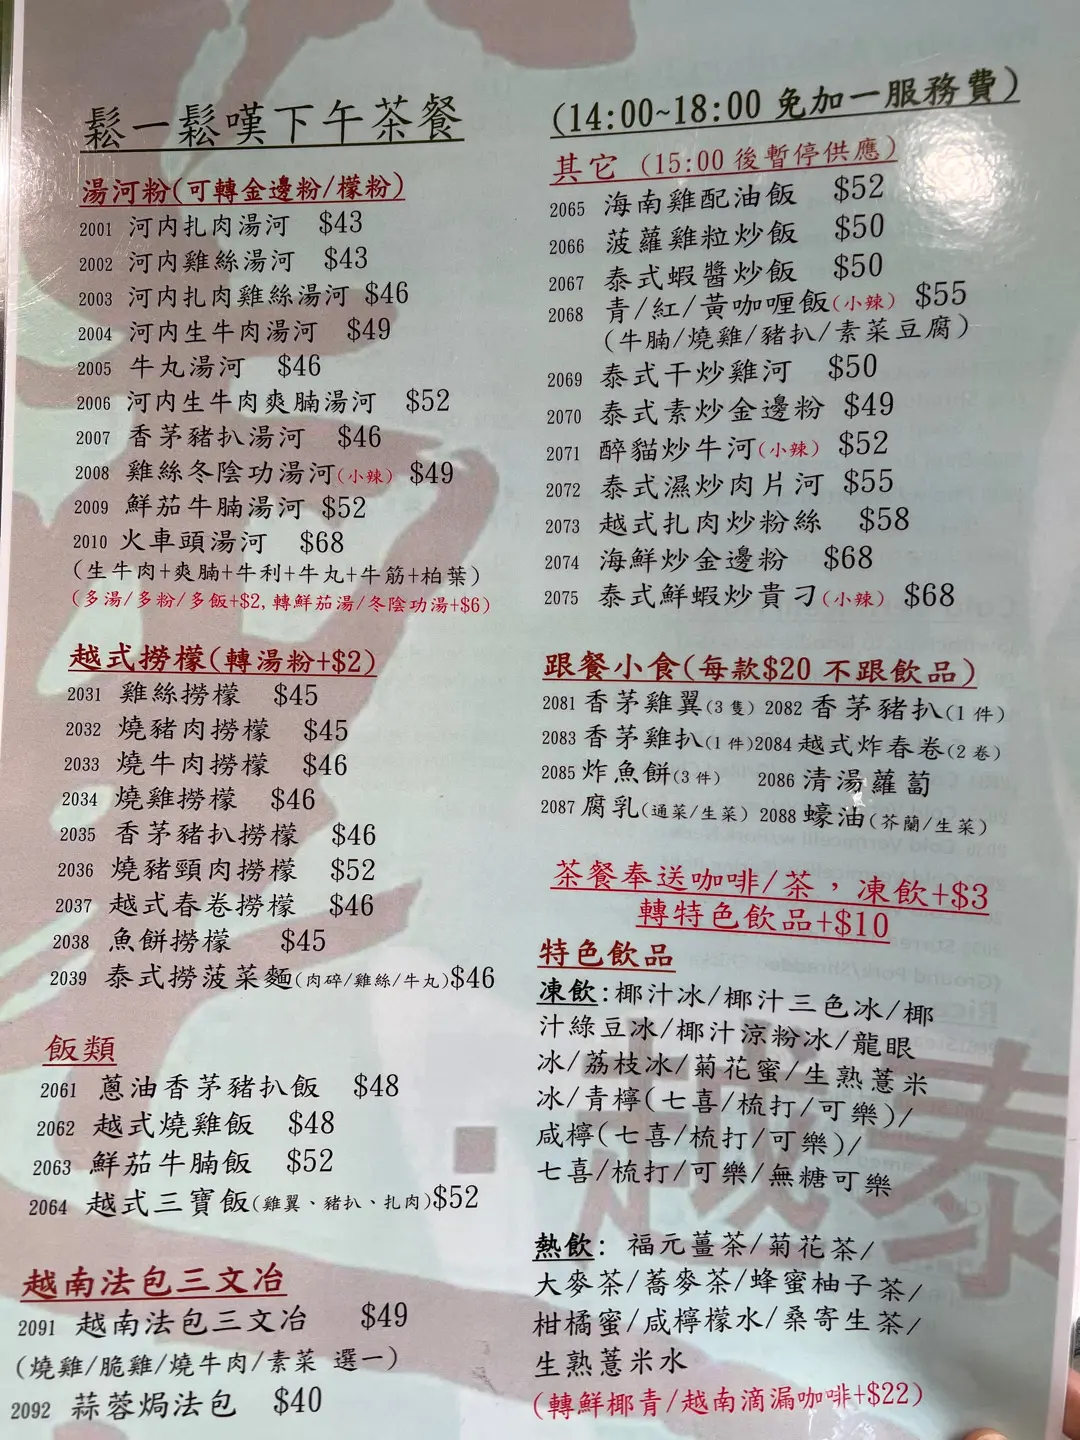 鬆一鬆嘆下午茶餐
湯河粉(可轉金邊粉/檬粉)
2001 河內扎肉湯河 $43
2002 河內雞絲湯河 $43
2003 河內扎肉雞絲湯河 $46
2004 河內生牛肉湯河 $49
2005 牛丸湯河 $46
2006 河內生牛肉爽腩湯河 $52
2007 香茅豬扒湯河 $46
2008 雞絲冬陰功湯河(小辣) $49
2009 鮮茄牛腩湯河 $52
2010 火車頭湯河 $68
(生牛肉+爽腩+牛利+牛丸+牛筋+柏葉)
(多湯/多粉/多飯+$2,轉鮮茄湯/冬陰功湯+$6)
越式撈檬(轉湯粉+$2)
2031 雞絲撈檬 $45
2032 燒豬肉撈檬 $45
2033 燒牛肉撈檬 $46
2034 燒雞撈檬 $46
2035 香茅豬扒撈檬 $46
2036 燒豬頸肉撈檬 $52
2037 越式春卷撈檬 $46
2038 魚餅撈檬 $45
2039 泰式撈菠菜麵(肉碎/雞絲/牛丸)$46
飯類
2061 蔥油香茅豬扒飯 $48
2062 越式燒雞飯 $48
2063 鮮茄牛腩飯 $52
2064 越式三寶飯(雞翼、豬扒、扎肉)$52
越南法包三文治
2091 越南法包三文治 $49
(燒雞/脆雞/燒牛肉/素菜 選一)
2092 蒜蓉焗法包 $40
(14:00~18:00 免加一服務費)
其它 (15:00 後暫停供應)
2065 海南雞配油飯 $52
2066 菠蘿雞粒炒飯 $50
2067 泰式蝦醬炒飯 $50
2068 青/紅/黃咖喱飯(小辣) $55
(牛腩/燒雞/豬扒/素菜豆腐)
2069 泰式干炒雞河 $50
2070 泰式素炒金邊粉 $49
2071 醉貓炒牛河(小辣) $52
2072 泰式濕炒肉片河 $55
2073 越式扎肉炒粉絲 $58
2074 海鮮炒金邊粉 $68
2075 泰式鮮蝦炒貴刁(小辣) $68
跟餐小食(每款$20 不跟飲品)
2081 香茅雞翼(3 隻) 2082 香茅豬扒(1 件)
2083 香茅雞扒(1 件)2084 越式炸春卷(2 卷)
2085 炸魚餅(3 件) 2086 清湯蘿蔔
2087 腐乳(通菜/生菜) 2088 蠔油(芥蘭/生菜)
茶餐奉送咖啡/茶，凍飲+$3
轉特色飲品+$10
特色飲品
凍飲:椰汁冰/椰汁三色冰/椰
汁綠豆冰/椰汁涼粉冰/龍眼
冰/荔枝冰/菊花蜜/生熟薏米
冰/青檸(七喜/梳打/可樂)/
咸檸(七喜/梳打/可樂)/
七喜/梳打/可樂/無糖可樂
熱飲: 福元薑茶/菊花茶/
大麥茶/蕎麥茶/蜂蜜柚子茶/
柑橘蜜/咸檸檬水/桑寄生茶/
生熟薏米水
(轉鮮椰青/越南滴漏咖啡+$22)
越泰